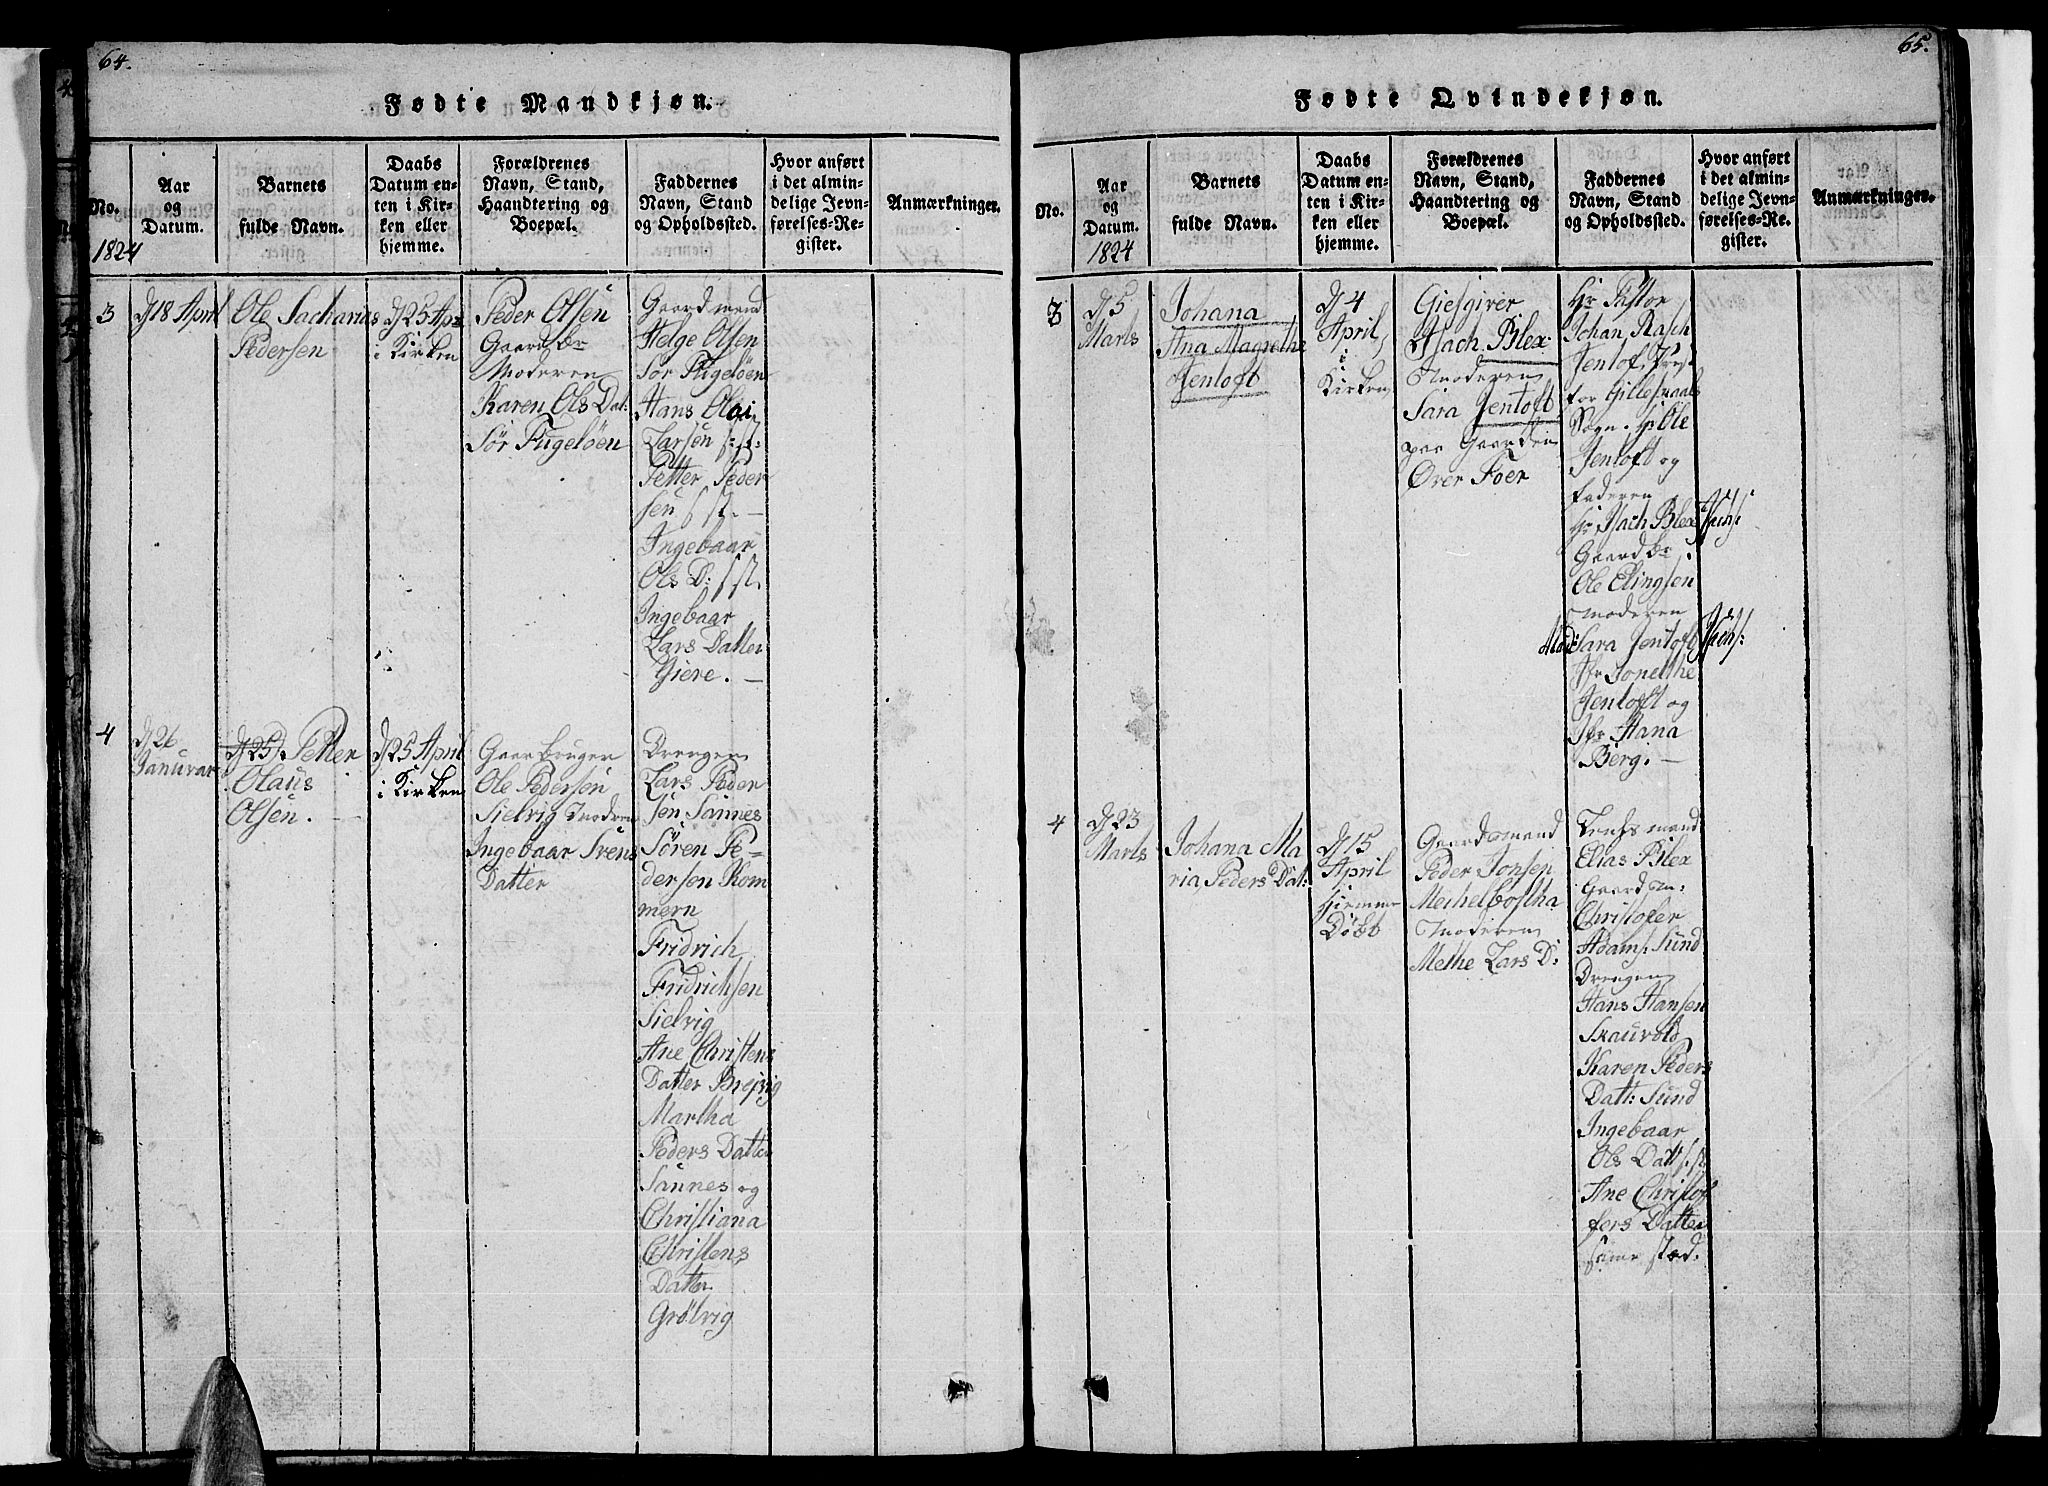 64.
Fødte Mandkjøn.
No.
1824
Aar
og
Datum.
Barnets
fulde Navn.
Daabs
Datum en-
ten i Kir-
ken eller
hjemme.
Forældrenes
Navn, Stand,
Haandtering og
Boepæl.
Faddernes
Navn, Stand
og Opholdssted.
Hvor anført
i det almin-
delige Jevn-
førelses-Re-
gister.
Anmærkninger.
3
d 18 April
Ole Sacharias
Pedersen
d 25 Apr
i Kirken
Peder Olsen
Gaardbr
Moderen
Karen Ols Dat:
Sør Fugeløen
Gaardmend
Helge Olsen
Sør Fugeløen
Hans Olai
Larsen s: st:
Petter Peder
sen s st. —
Ingebaar
Ols D: s st.
Ingebaar
Lars Datter
Giere. —
4
d 26
Januvar
d 25 Petter
Olaus
Olsen. —
d 25 April
i Kirken
Gaarbruger
Ole Pedersen
Sielvig Modren
Ingebaar Svens
Datter
Drengen
Lars Peder
sen Sannes
Søren Pe-
dersen Kom
mern
Fridrich
Fridrichsen
Sielvig
Ane Christens
Datter Brejvig
Martha
Peders Datter
Sannes og
Christiana
Christens
Datter
Grølvig
65.
Fødte Qvindekjøn.
No.
Aar
og
Datum.
1824
Barnets
fulde Navn.
Daabs
Datum en-
ten i Kir-
ken eller
hjemme.
Forældrenes
Navn, Stand,
Haandtering og
Boepæl.
Faddernes
Navn, Stand
og Opholdssted.
Hvor anført
i det almin-
delige Jevn-
førelses-Re-
gister.
Anmærkninger.
3
d 5
Marts
Johana
Ana Magrethe
Jentoft
d 4
April
i
Kirken
Giesgiver
Isach Blex
Moderen
Sara Jentoft
paa Gaarden
Øver Foer
Hr Pastor
Johan Rasch
Jentoft, Præst
for Gilleskaals
Sogn. Hr Ole
Jentoft og
Faderen
Hr Isach Blex
Gaardbr
Ole Elingsen
Moderen
Mad: Sara Jentoft
Jfr Jonethe
Jentoft og
Jfr Hana
Berg. —
4
d 23
Marts
Johana Ma
ria, Peders Dat:
d 15
April
Hiemme
Døbt
Gaardsmand
Peder Jonsen
Mechelbostha
Moderen
Methe Lars D:
Lensmand
Elias Blex
Gaardm:
Christofer
Adams: Sund
Drengen
Hans Hansen
Skauvold
Karen Peders
Datt: Sund
Ingebaar
Ols Datt s. st.
Ane Christof
fers Datter
same sted.